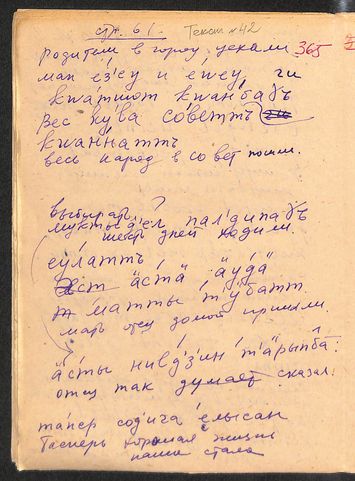 стр. 61. Текст №42
родители в город уехали 365
мап е́з'еу и е́неу, ти
кwа́тшот кwанба́дъ
Вес ку́ва сове́ттъ
кwа́ннаттъ
весь народ в совет пошли.
выбирать?
мукты́д'ел пал'дипадъ
шесть дней ходили.
еӱла́ттъ
ӓста́ ӓӱ́да
ма́тты тӱ́батт
мать отец домой пришли.
ӓсты нивд'з'ин т'а́рыпба:
отец так сказал:
та́пер сод'ича е́лысан
Теперь хорошая жизнь
наша стала